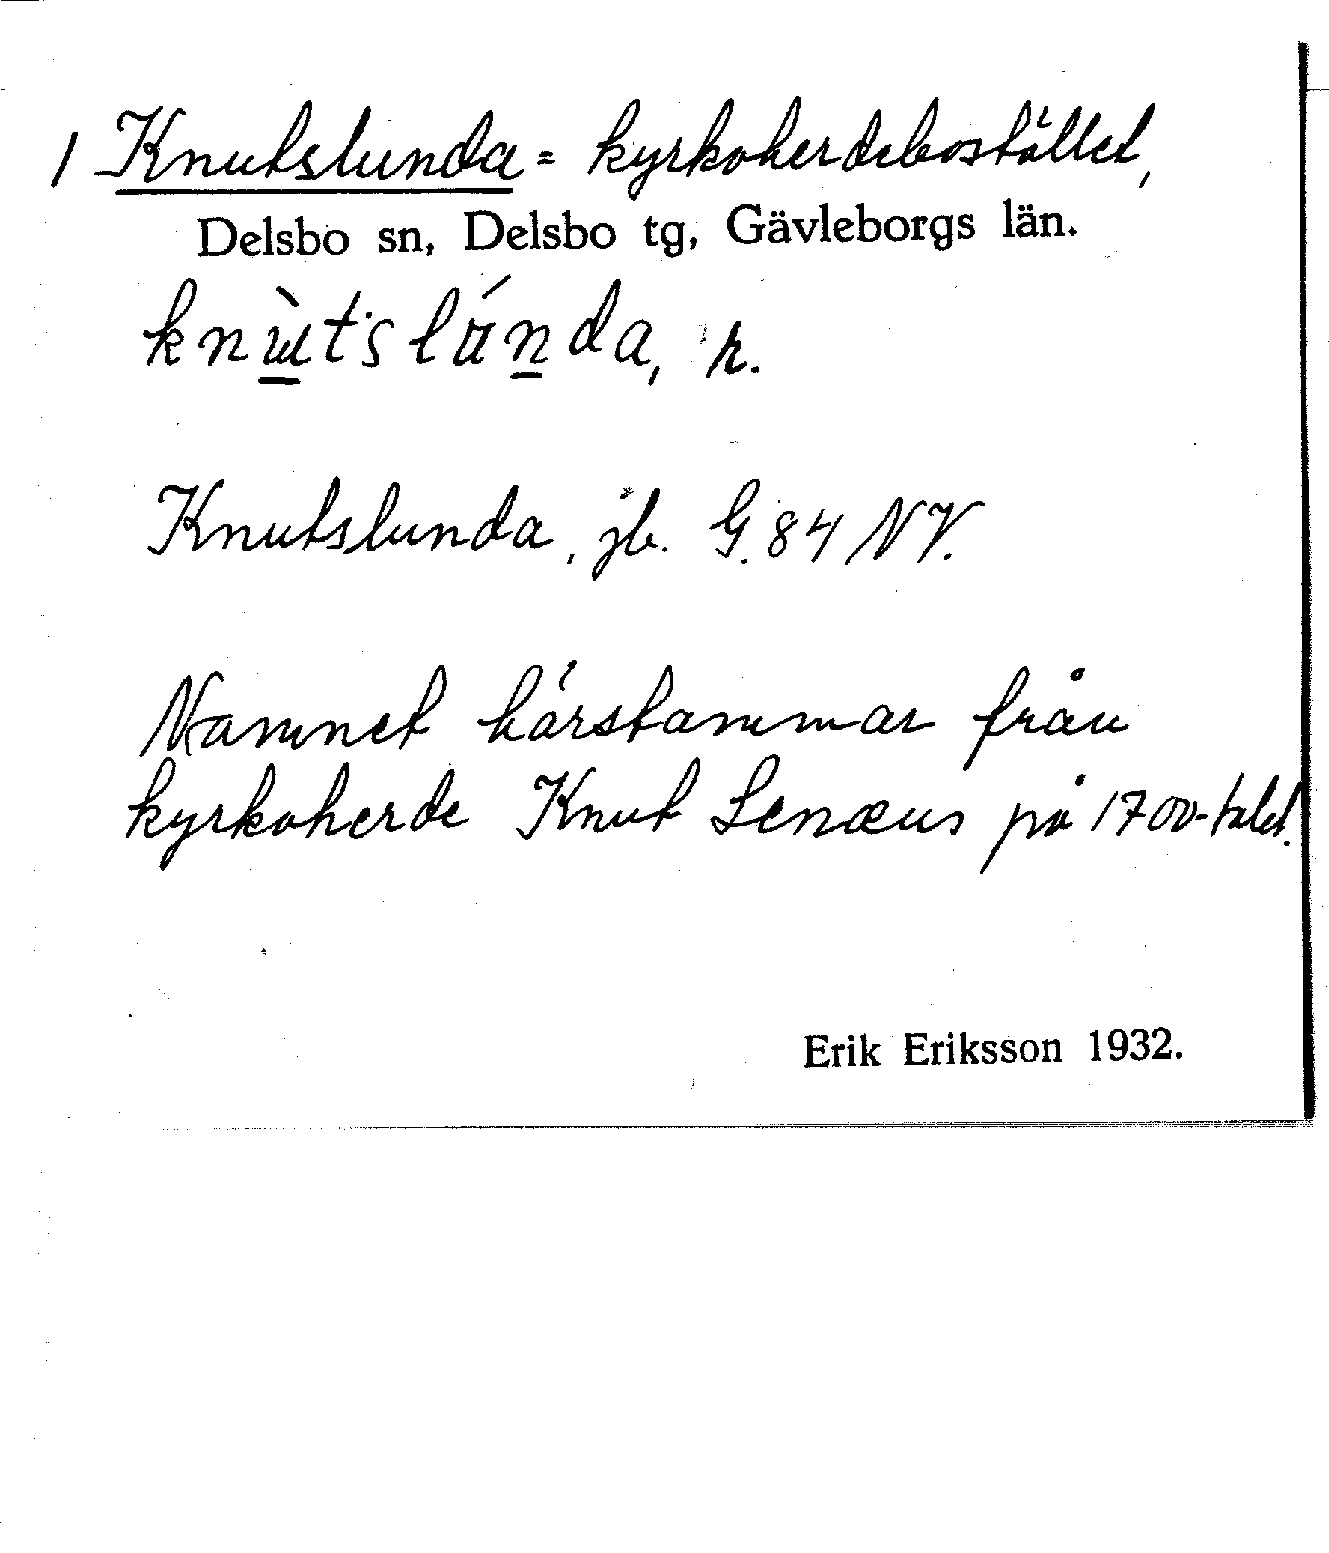 1 Knutslunda = kyrkoherdebostället,
Delsbo sn, Delsbo tg, Gävleborgs län.
knùtslúnda, r.
Knutslunda, jb. G. 84 NV.
Namnet härstammar från
kyrkoherde Knut Lenæus på 1700-talet.
Erik Eriksson 1932.